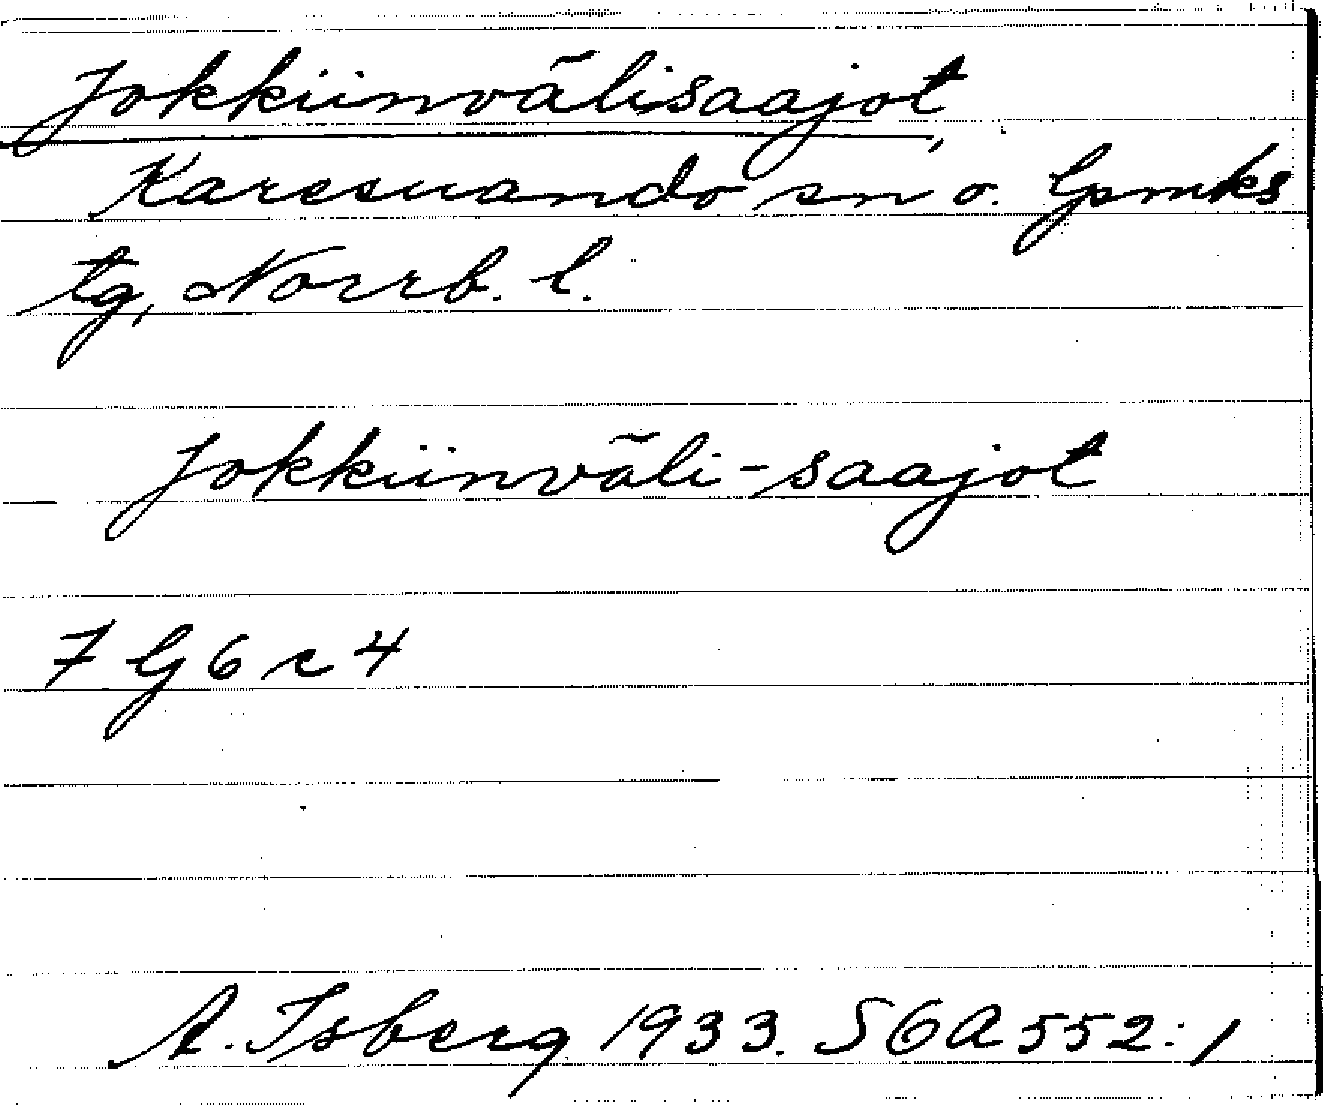 Jokkiinvälisaajot,
Karesuando sn o. Lpmks
tg, Norrb. l.
Jokkiinväli-saajot
7 G 6 c 4
A. Isberg 1933. SGA 552:1